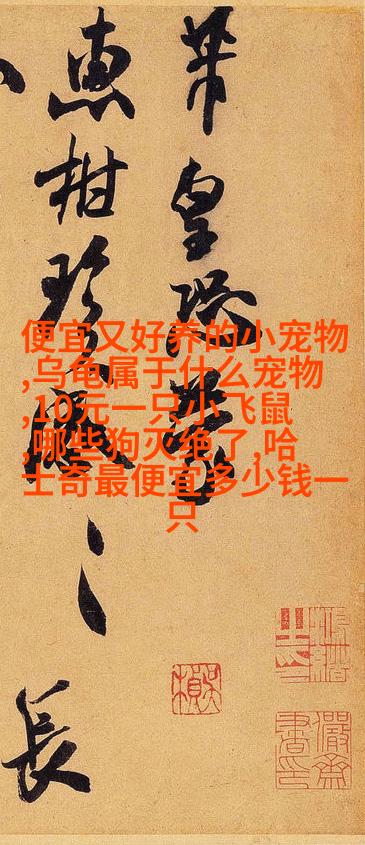 便宜又好养的小宠物
,乌龟属于什么宠物
,10元一只小飞鼠
,哪些狗灭绝了,哈
士奇最便宜多少钱一
只
皇恐
惠柑珍感
長